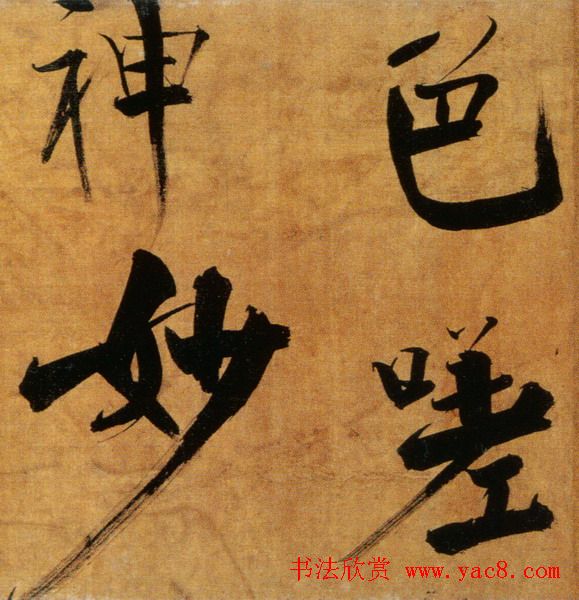 色嗟
神妙
书法欣赏 www.yac8.com